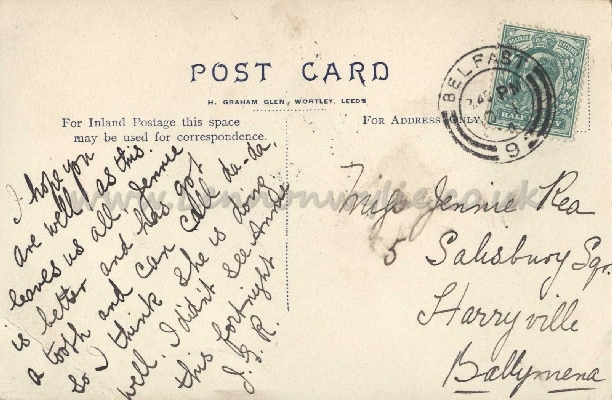 POST CARD
H. GRAHAM GLEN, WORTLEY, LEEDS
For Inland Postage this space
may be used for correspondence.
For Address Only.
BELFAST
PM
9
HALF
I hope you
are well as this
leaves us all. Jennie
is better and has got
a tooth and can call da-da,
so I think she is doing
well. I didn't see Annie
this fortnight
J. G. R.
Miss Jennie Rea
5 Salisbury Sqr.
Harryville
Ballymena